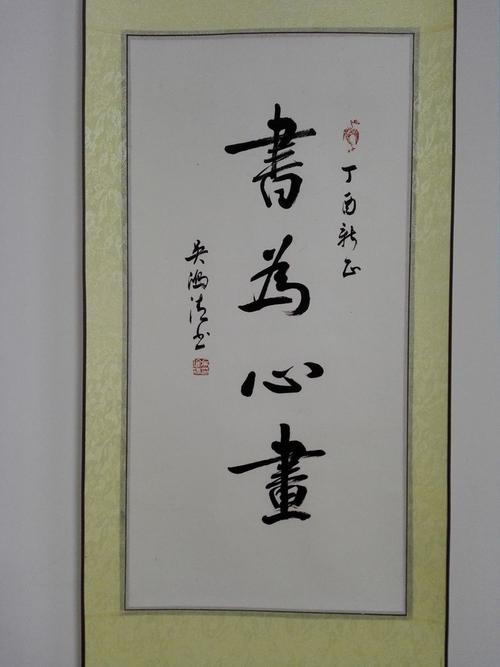 丁酉新正
書為心畫
吳鴻清书